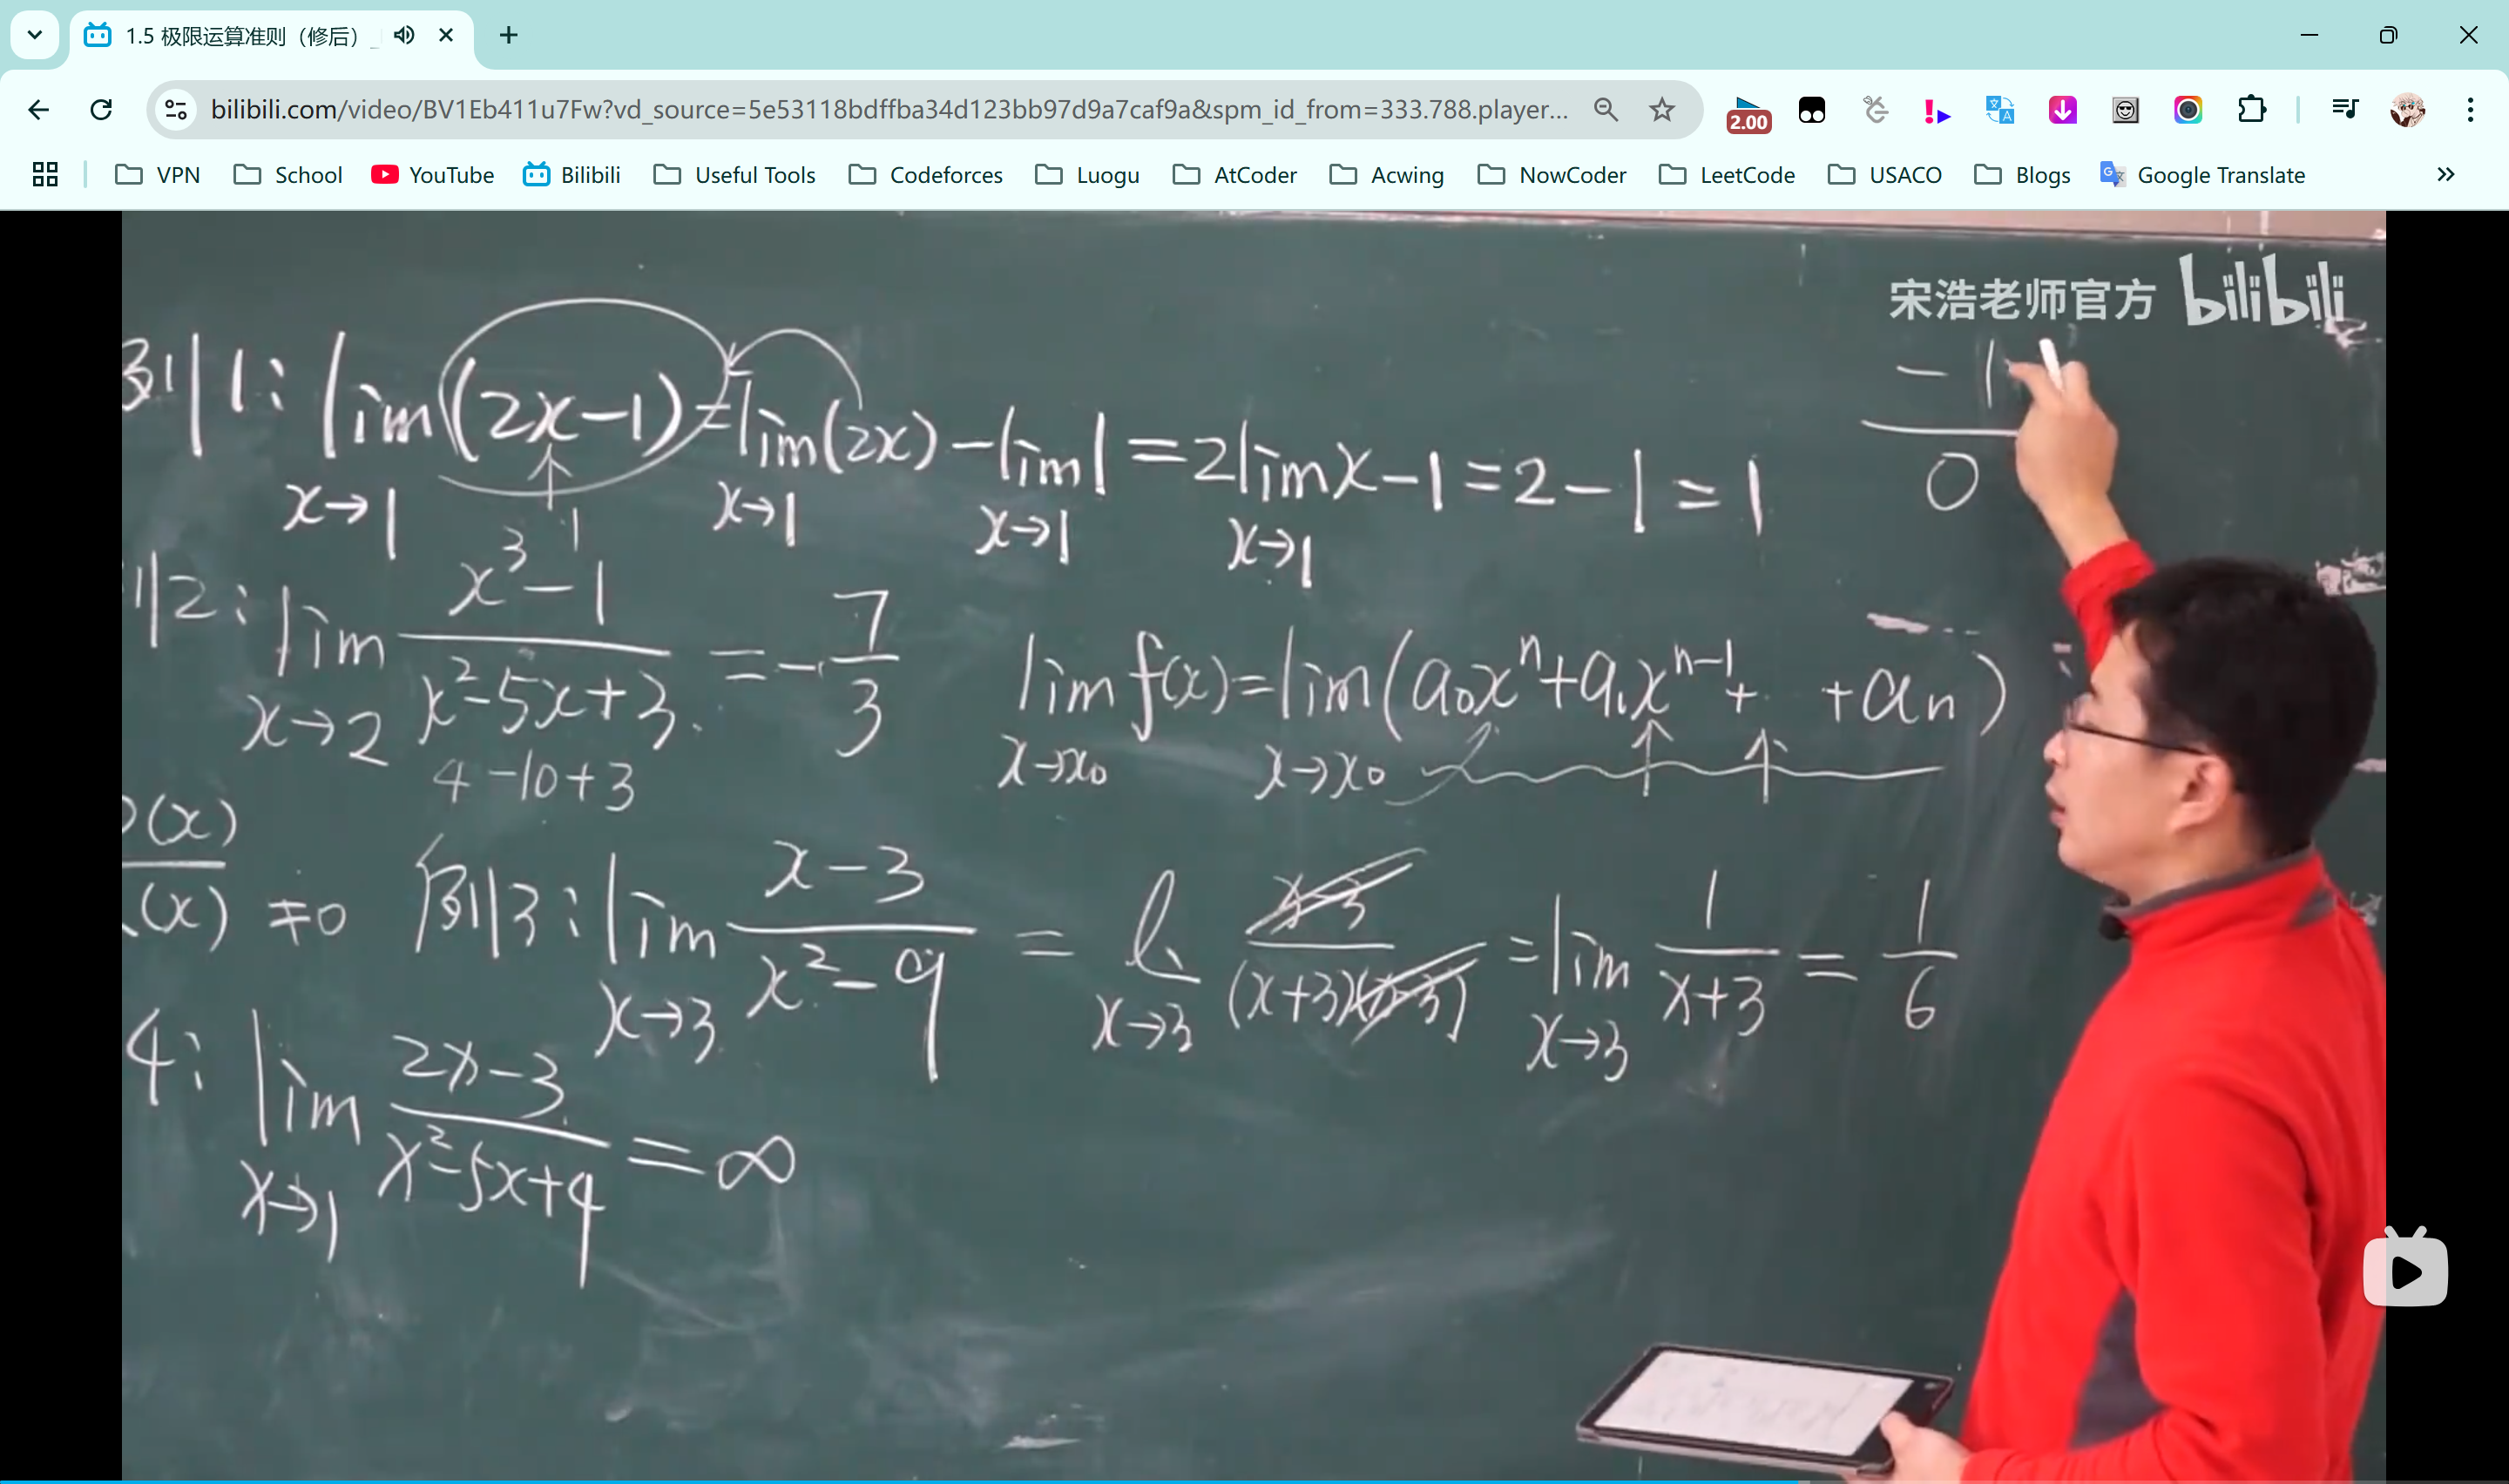 1.5 极限运算准则（修后）_
bilibili.com/video/BV1Eb411u7Fw?vd_source=5e53118bdffba34d123bb97d9a7caf9a&spm_id_from=333.788.player...
2.00
VPN School YouTube Bilibili Useful Tools Codeforces Luogu AtCoder Acwing NowCoder LeetCode USACO Blogs Google Translate
宋浩老师官方 bilibili
-1
0
例1: lim(2x-1)=lim(2x)-lim1=2limx-1=2-1=1
x→1 x→1 x→1 x→1
1
例2: lim x³-1 / x²-5x+3 = -7/3
x→2
4-10+3
lim f(x)=lim(a₀xⁿ+a₁xⁿ⁻¹+ +aₙ)
x→x₀ x→x₀
(x)
(x) ≠0
例3: lim x-3 / x²-9 = l x-3 / (x+3)(x-3) = lim 1 / x+3 = 1/6
x→3 x→3 x→3
4: lim 2x-3 / x²-5x+4 = ∞
x→1